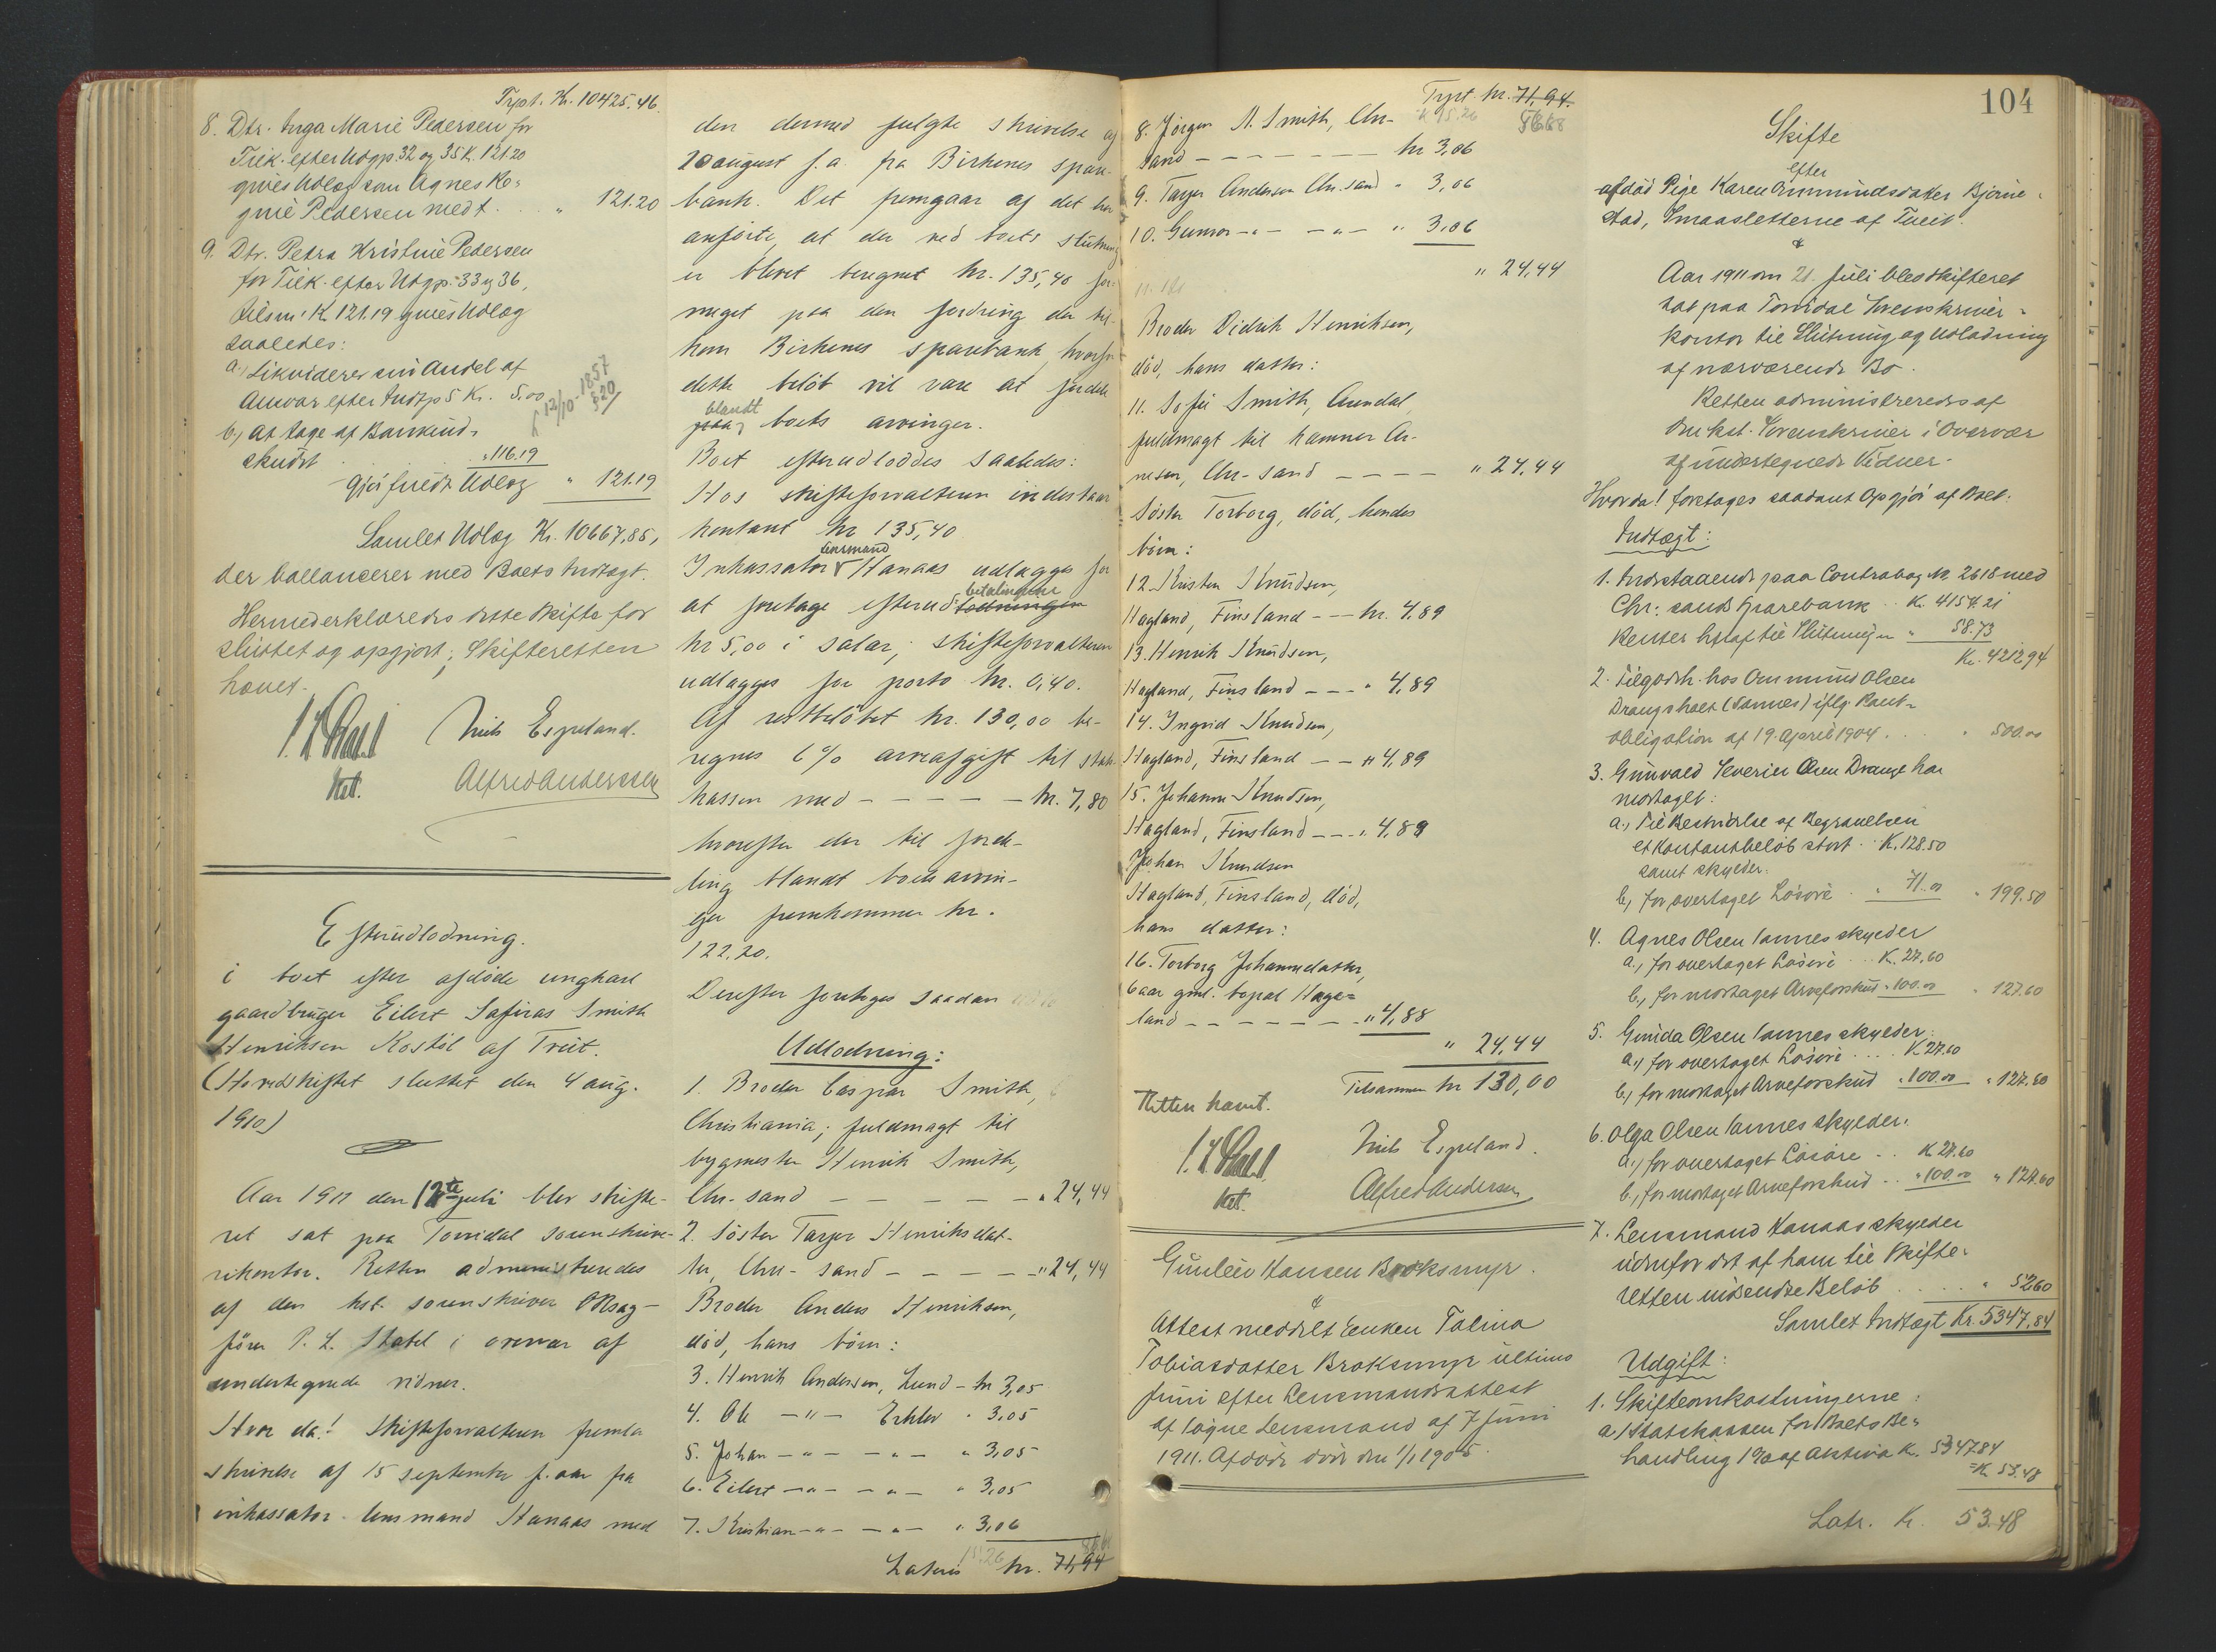 Trpt. Kr. 10425.46
8. Dtr. Inga Marie Pedersen for
Tilk. efter Udgp. 32 og 35 K. 121.20
gives Udlæg som Agnes Re-
gine Pedersen med t. . . " 121.20
9. Dtr. Petra Kristine Pedersen
for Tilk. efter Udgp. 33 og 36,
tilsm: K. 121.19 gives Udlæg
saaledes:
a., Likviderer sin Andel af
Ansvar efter Indtp 5 Kr. 5,00
b., at tage af Bankind-
skudt . . " 116.19
Gjenfundet Udlæg " 121.19
Samlet Udlæg Kr. 10667,85,
der ballancerer med Boets Indtægt.
Hermed erklæredes dette Skifte for
sluttet og opgjort; Skifteretten
hævet.
Niels Espeland.
kst.
Alfred Anderssen
Efterudlodning.
i boet efter afdøde ungkarl
gaardbruger Eilert Safiras Smith
Henriksen Kostøl af Treit.
(Hovedskiftet sluttet den 4 aug.
1910)
Aar 1911 den 12te juli blev skifte-
ret sat paa Torridal sorenskrive-
rikontor. Retten administreredes
af den kst. sorenskriver ORsag-
fører P. L. Stabel i overvær af
undertegnede vidner.
Hvor da! Skifteforvalteren fremla
skrivelse af 15 september f. aar fra
inkassator lensmand Hanaas med
den dermed fulgte skrivelse af
20 august s.a. fra Birkenes spare-
bank. Det fremgaar af det her
anførte, at der ved boets slutning
er blevet beregnet kr. 135,40 for-
meget paa den fordring der til-
kom Birkenes sparebank, hvorfor
dette beløb vil være at fordele
blandt
paa boets arvinger.
Boet efterudloddes saaledes:
Hos skifteforvalteren indestaar
kontant kr 135,40
lensmand
Inkassator Hanaas udlægges for
betalingerne
at foretage efterudlodningen
kr 5,00 i salær; skifteforvalteren
udlægges for porto kr. 0,40.
Af restbeløbet kr. 130,00 be-
regnes 6 % arveafgift til stats-
kassen med - - - - - kr. 7,80
hvorefter der til forde-
ling blandt boets arvin-
ger fremkommer kr.
122.20.
Derefter foretoges saadan
Udlodning:
1. Broder Caspar Smith,
Christiania; fuldmagt til
bygmester Henrik Smith,
Chr-sand - - - - - " 24,44
2. Søster Tarjer Henriksdat-
ter, Chr-sand - - - - - " 24,44
Broder Anders Henriksen,
død, hans børn:
3. Henrik Andersen, Lund - kr 3,05
4. Ole - " - Erkler " 3,05
5. Johan - " - - " - " 3,05
6. Eilert - " - - " - " 3,05
7. Kristian - " - - " - " 3,06
15.26
Lateris kr. 71,94
Trpt. kr. 71,94.
8. Jørgen A. Smith, Chr-
sand - - - - - - - kr 3,06
9. Tarjer Andersen Chr.sand " 3,06
10. Gunvor - " - - " - " 3,06
" 24,44
Broder Didrik Henriksen,
død, hans datter:
11. Sofie Smith, Arendal
fuldmagt til kæmner Ar-
nesen, Chr-sand - - - - " 24,44
Søster Torborg, død, hendes
børn:
12. Kristen Knudsen,
Hagland, Finsland - - kr. 4,89
13. Henrik Knudsen,
Hagland, Finsland - - - " 4,89
14. Ingrid Knudsen,
Hagland, Finsland - - " 4,89
15. Johanne Knudsen,
Hagland, Finsland - - - " 4,89
Johan Knudsen
Hagland, Finsland, død,
hans datter:
16. Torborg Johannedatter,
6 aar gml. bopæl Hage-
land - - - - - - - " 4,88
" 24,44
Tilsammen kr 130,00
Retten hævet.
Niels Espeland.
kst.
Alfred Andersen
Gunleiv Hansen Broksmyr.
Attest meddelt Enken Talina
Tobiasdatter Broksmyr ultimo
Juni efter Lensmandsattest
af Søgne Lensmand af 7 Juni
1911. Afdøde døde den 1/1 1905.
104
Skifte
efter
afdød Pige Karen Ommundsdatter Bjørne-
stad, Smaasletterne af Tveit.
Aar 1911 den 21. Juli blev Skifteret
sat paa Torridal Sorenskriver-
kontor til Slutning og Udlodning
af nærværende Bo.
Retten administreredes af
den kst. Sorenskriver i Overvær
af undertegnede Vidner.
Hvorda! foretages saadant Opgjør af Boet:
Indtægt:
1. Indestaaende paa Contrabog No. 2618 med
Chr:sands Sparebank . . K. 4154.21
Renter heraf til Slutningen " 58.73
Kr. 4212.94
2. Tilgodeh. hos Ommund Olsen
Drangsholt (Vannes) iflg. Pant-
obligation af 19. April 1904 . . . " 500.00
3. Gunvald Severin Olsen Drange har
modtaget:
a., Til Bestridelse af Begravelsen
et Kontantbeløb stort . K. 128.50
samt skylder:
b., for overtaget Løsøre . " 71.00 " 199.50
4. Agnes Olsen Vannes skylder
a., for overtaget Løsøre . . K. 27.60
b., for modtaget Arveforskud " 100.00 " 127.60
5. Gunda Olsen Vannes skylder:
a., for overtaget Løsøre . . . K. 27.60
b., for modtaget Arveforskud " 100.00 " 127.60
6. Olga Olsen Vannes skylder:
a., for overtaget Løsøre . . K 27.60
b., for modtaget Arveforskud . . " 100.00 " 127.60
7. Lensmand Hanaas skylder
udenfor det af ham til Skifte-
retten indsendte Beløb . . . . " 52.60
Samlet Indtægt Kr. 5347,84
Udgift:
1. Skifteomkostningerne:
a., Statskassen for Boets Be-
handling 1 % af Aktiva K. 5347.84
= K. 53.48
Latr. Kr. 53.48